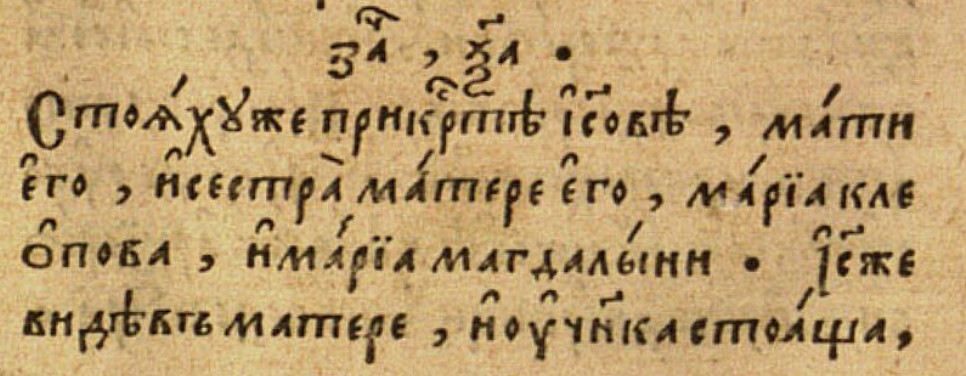 за҃ч , ѯ҃а .
Стоѧ́хꙋже прикрⷭ҇тѣ і҆с҃овѣ , ма́ти
є҆го , и҆сестра̀ ма́тере є҆го , ма́рїа кле
ѻ҆пова , и҆ма́рїа магдалы́ни . І҆с҃же
видѣвъ матере , и҆ оу҆ч҃нка стоа́ща ,